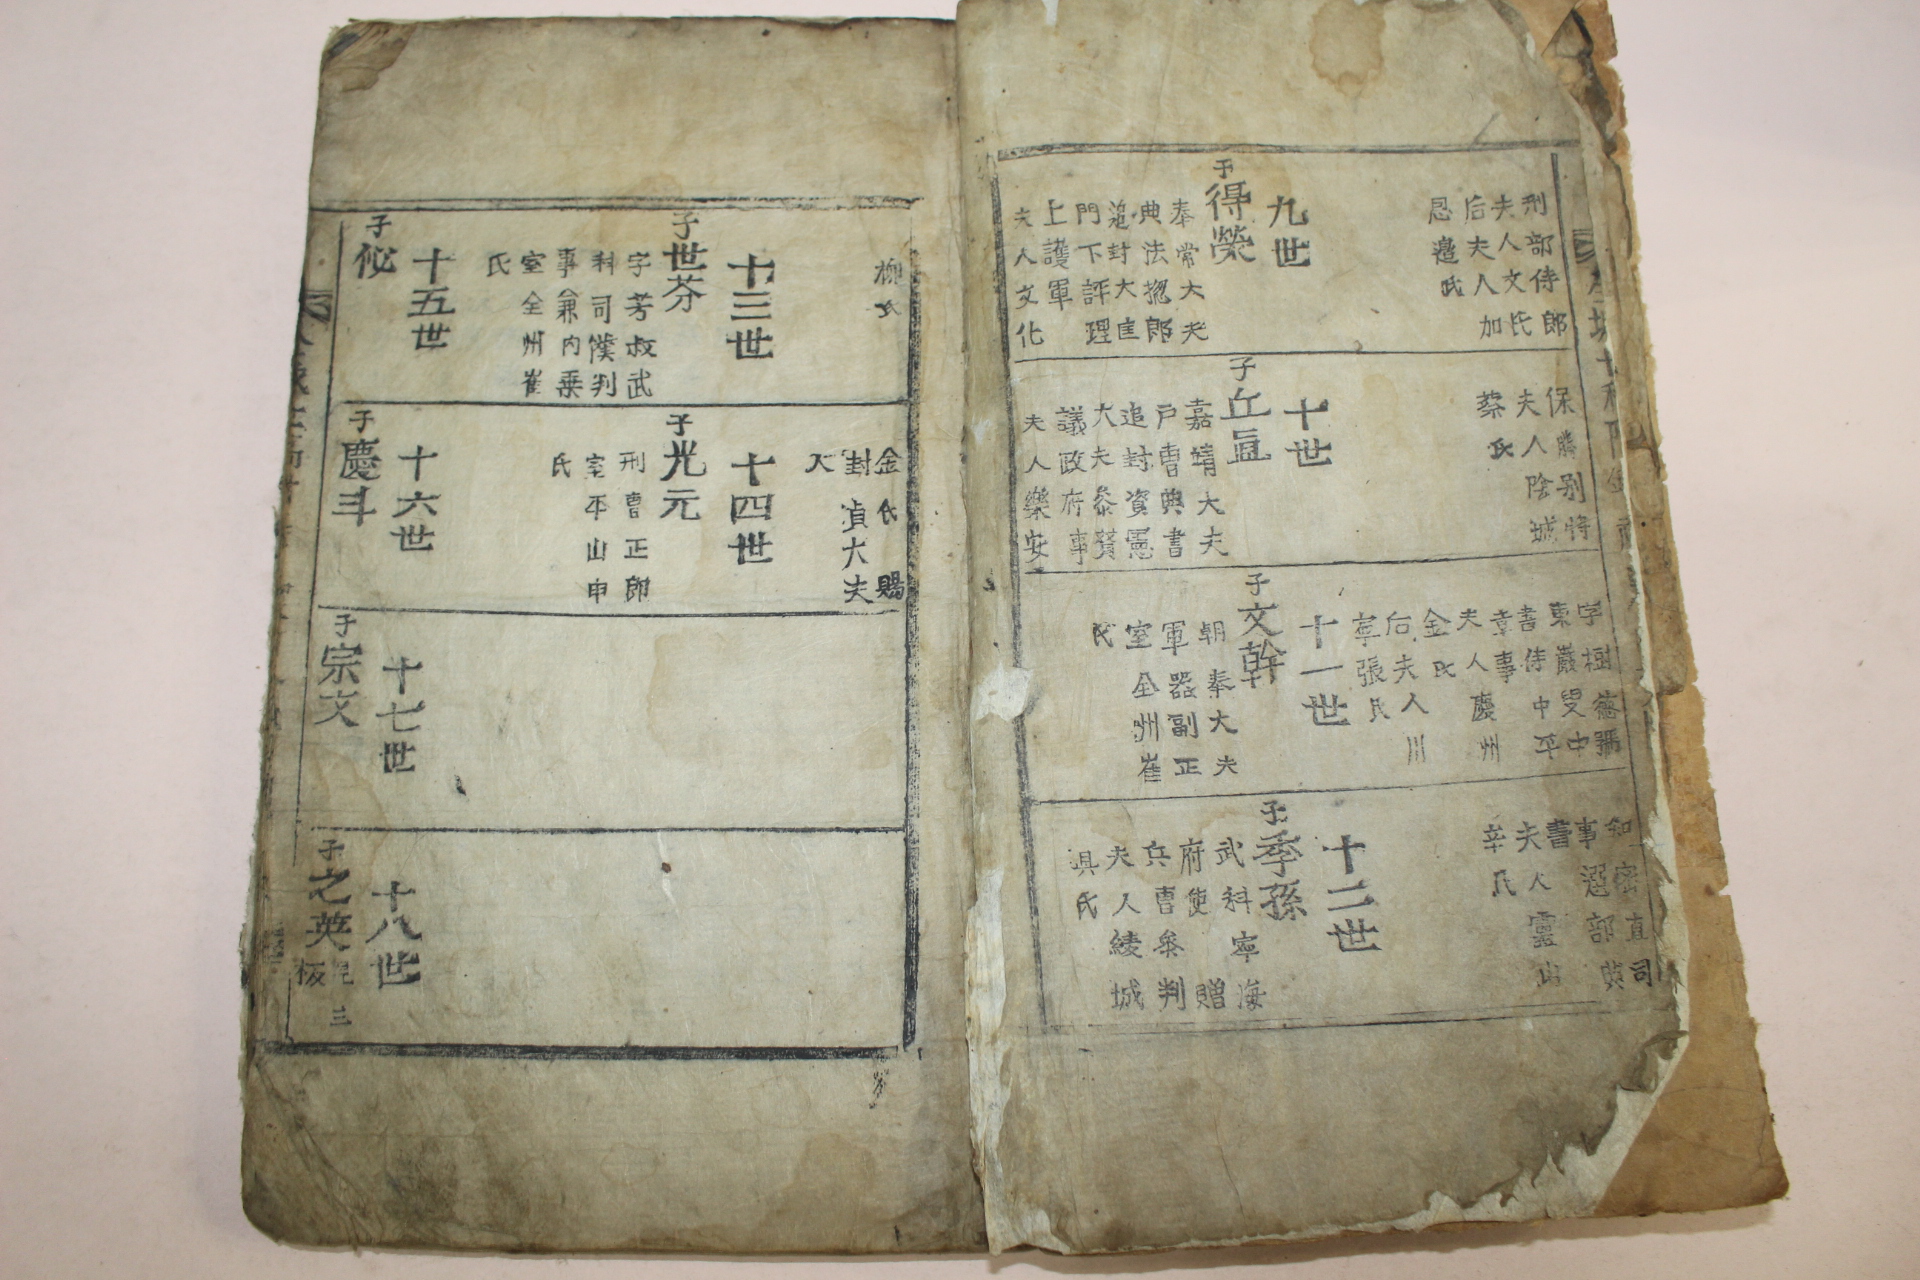 刑部侍郎
夫人文氏
后夫人加
恩邉氏
九世
子得榮
奉常大夫
典法揔郎
追封大匡
門下評理
上護軍
夫人文化
柳氏
保勝別將
夫人陰城
蔡氏
十世
子丘直
嘉靖大夫
戶曹典書
追封資憲
大夫叅贊
議政府事
夫人樂安
金氏 賜
封貞大夫
人
字樹德號
東巖叟中
書侍中平
章事
夫人慶州
金氏
后夫人川
寧張氏
十一世
子文幹
朝奉大夫
軍器副正
室全州崔
氏
知密直司
事選部典
書
夫人靈山
辛氏
十二世
子季孫
武科寧海
府使 贈
兵曹叅判
夫人綾城
具氏
十三世
子世芬
字芳叔武
科司僕判
事兼內乗
室全州崔
氏
十四世
子光元
刑曹正郎
室平山申
氏
十五世
子佖
十六世
子慶斗
十七世
子宗文
十八世
子之英見
三板